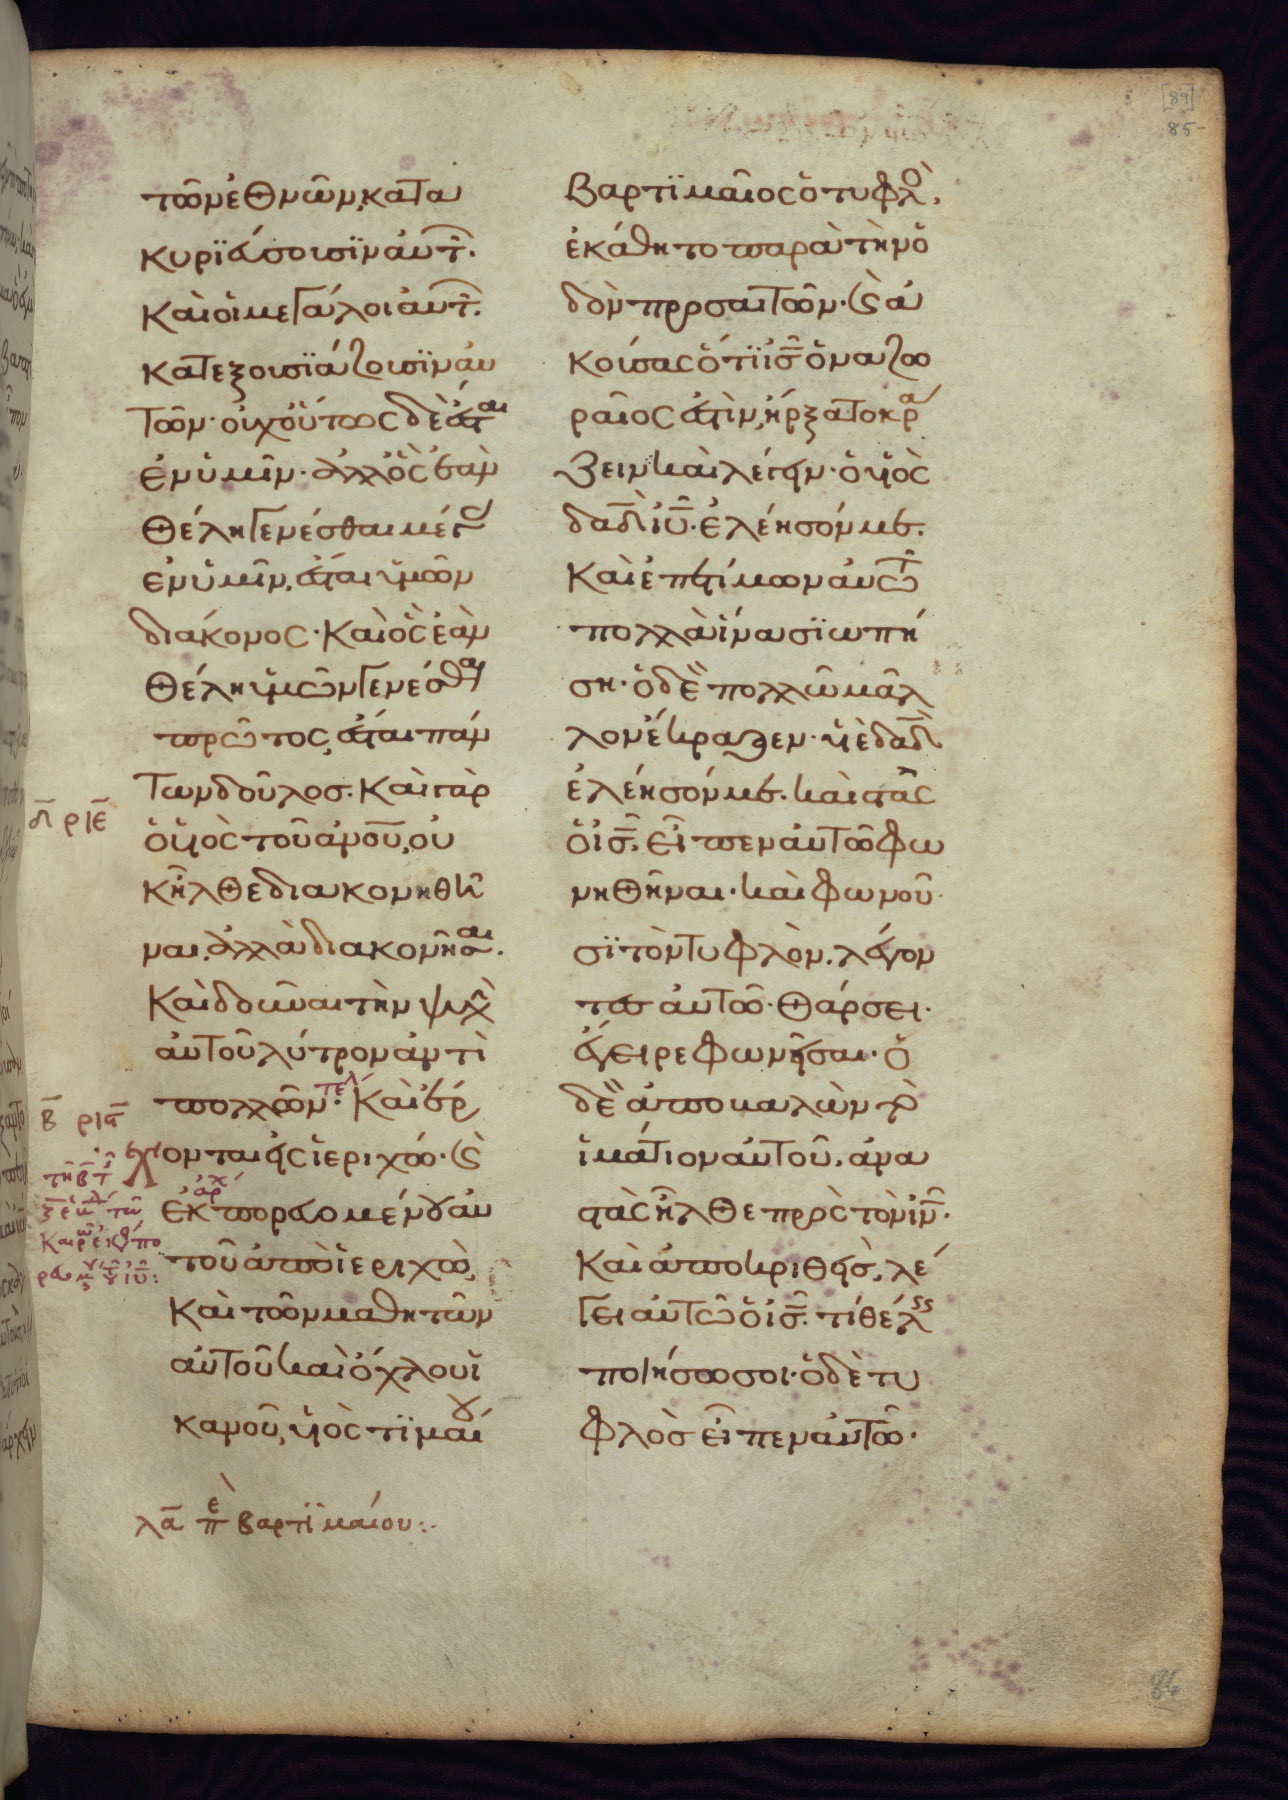 [84]
85
τῶν ἐθνῶν, κατα
κυριεύουσϊν αὐτ̑.
Καὶ οἱ μεγάλοι αὐτ̑.
κατεξουσϊάζουσϊν αὐ
τῶν· οὐχ οὕτως δὲ ἔσται
ἐν ὑμῖν· ἀλλ' ὃς ἐὰν
θέλη γενέσθαι μέγας
ἐν ὑμῖν, ἔσται ὑμῶν
διάκονος· Καὶ ὃς ἐὰν
θέλη ὑμῶν γενέσθαι
πρῶτος, ἔσται πάν
των δοῦλος. Καὶ γὰρ
ὁ υἱὸς τοῦ ἀνο̅υ̅, οὐ
κ ἦλθε διακονηθῆ
ναι, ἀλλὰ διακονῆσαι.
Καὶ δοῦναι τὴν ψυχὴ
αὐτοῦ λύτρον ἀντὶ
πολλῶν· τελ Καὶ ἔρ
χονται εἰς ἱεριχώ· καὶ
ἐκπορευομένου αὐ
τοῦ ἀπὸ ἱεριχὼ,
Καὶ τῶν μαθητῶν
αὐτοῦ καὶ ὄχλου ἱ
κανοῦ, υἱὸς τϊμαίου
δ̅ ριε̅
β̅ ρις̅
ἀρχ
λα̅ πε Βαρτϊμαίου:·
Βαρτϊμαῖος ὁ τυφλὸ,
ἐκάθητο παρὰ τὴν ὁ
δὸν προσαιτῶν· καὶ ἀ
κούσας ὅτι ϊσ̅ ὁ ναζω
ραῖος ἐστὶν, ἤρξατο κρά
ζειν καὶ λέγειν· ὁ υἱὸς
δα̅δ̅ ἰυ̅· ἐλέησόν με.
Καὶ ἐπετίμων αὐτῶ
πολλὰ ἵνα σϊωπή
ση· ὁ δὲ πολλῶ μᾶλ
λον ἔκραζεν· υἱὲ δα̅δ̅
ἐλέησόν με. καὶ στὰς
ὁ ἰσ̅. εἶπεν αὐτῶ φω
νηθῆναι· καὶ φωνοῦ
σϊ τὸν τυφλὸν, λέγον
τες αὐτῶ· θάρσει·
ἔγειρε φωνῆσαι· ὁ
δὲ ἀποβαλὼν τὸ
ἱμάτιον αὐτοῦ, ἀνα
στὰς ἦλθε πρὸς τὸν ἰν̅·
Καὶ ἀποκριθεὶς, λέ
γει αὐτῶ ὁ ἰσ̅. τί θέλεις
ποιήσω σοι· ὁ δὲ τυ
φλὸς εἶπεν αὐτῶ·
86